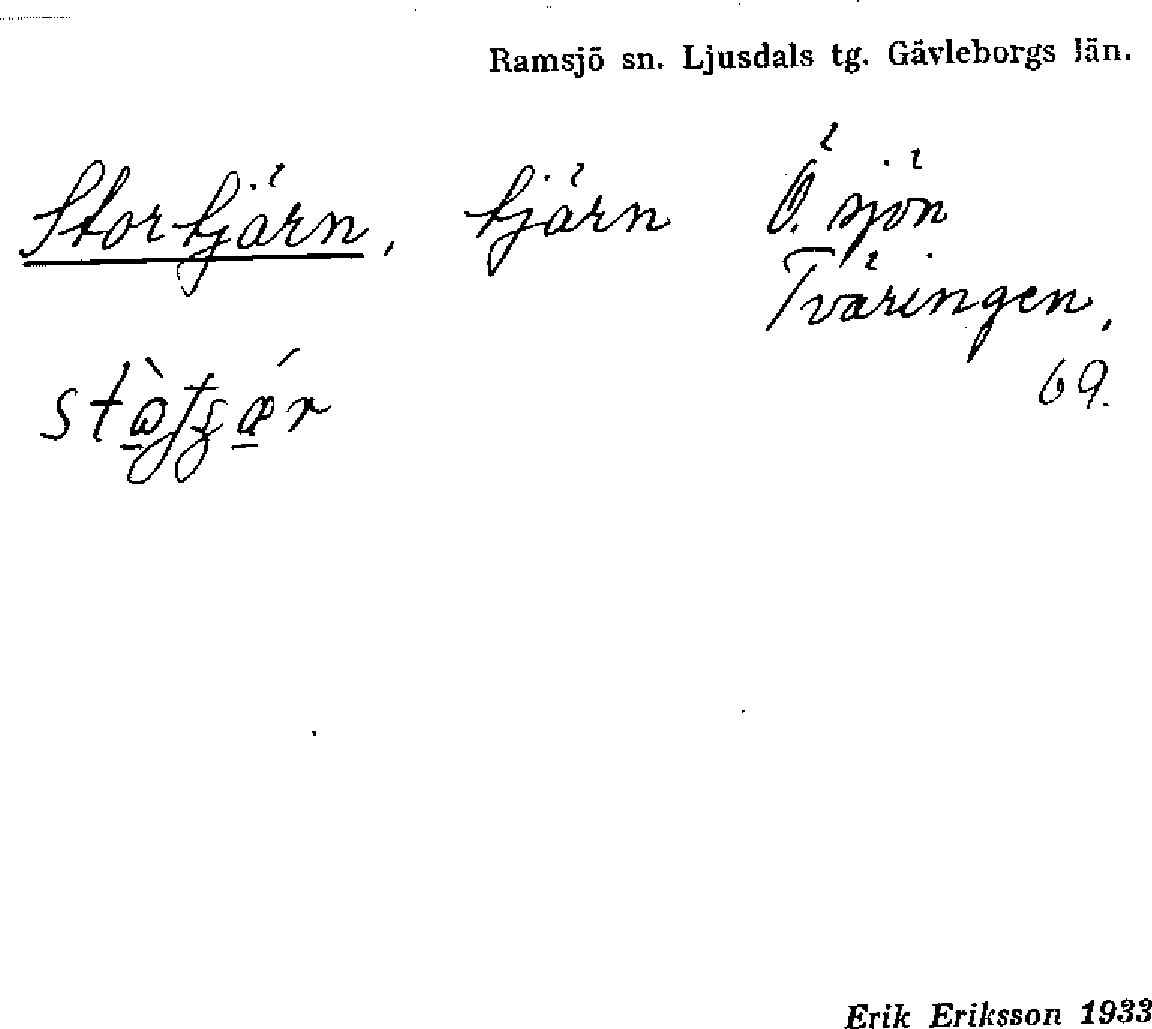 Ramsjö sn. Ljusdals tg. Gävleborgs län.
Stortjärn, tjärn Ö. sjön
Tväringen,
69.
Erik Eriksson 1933